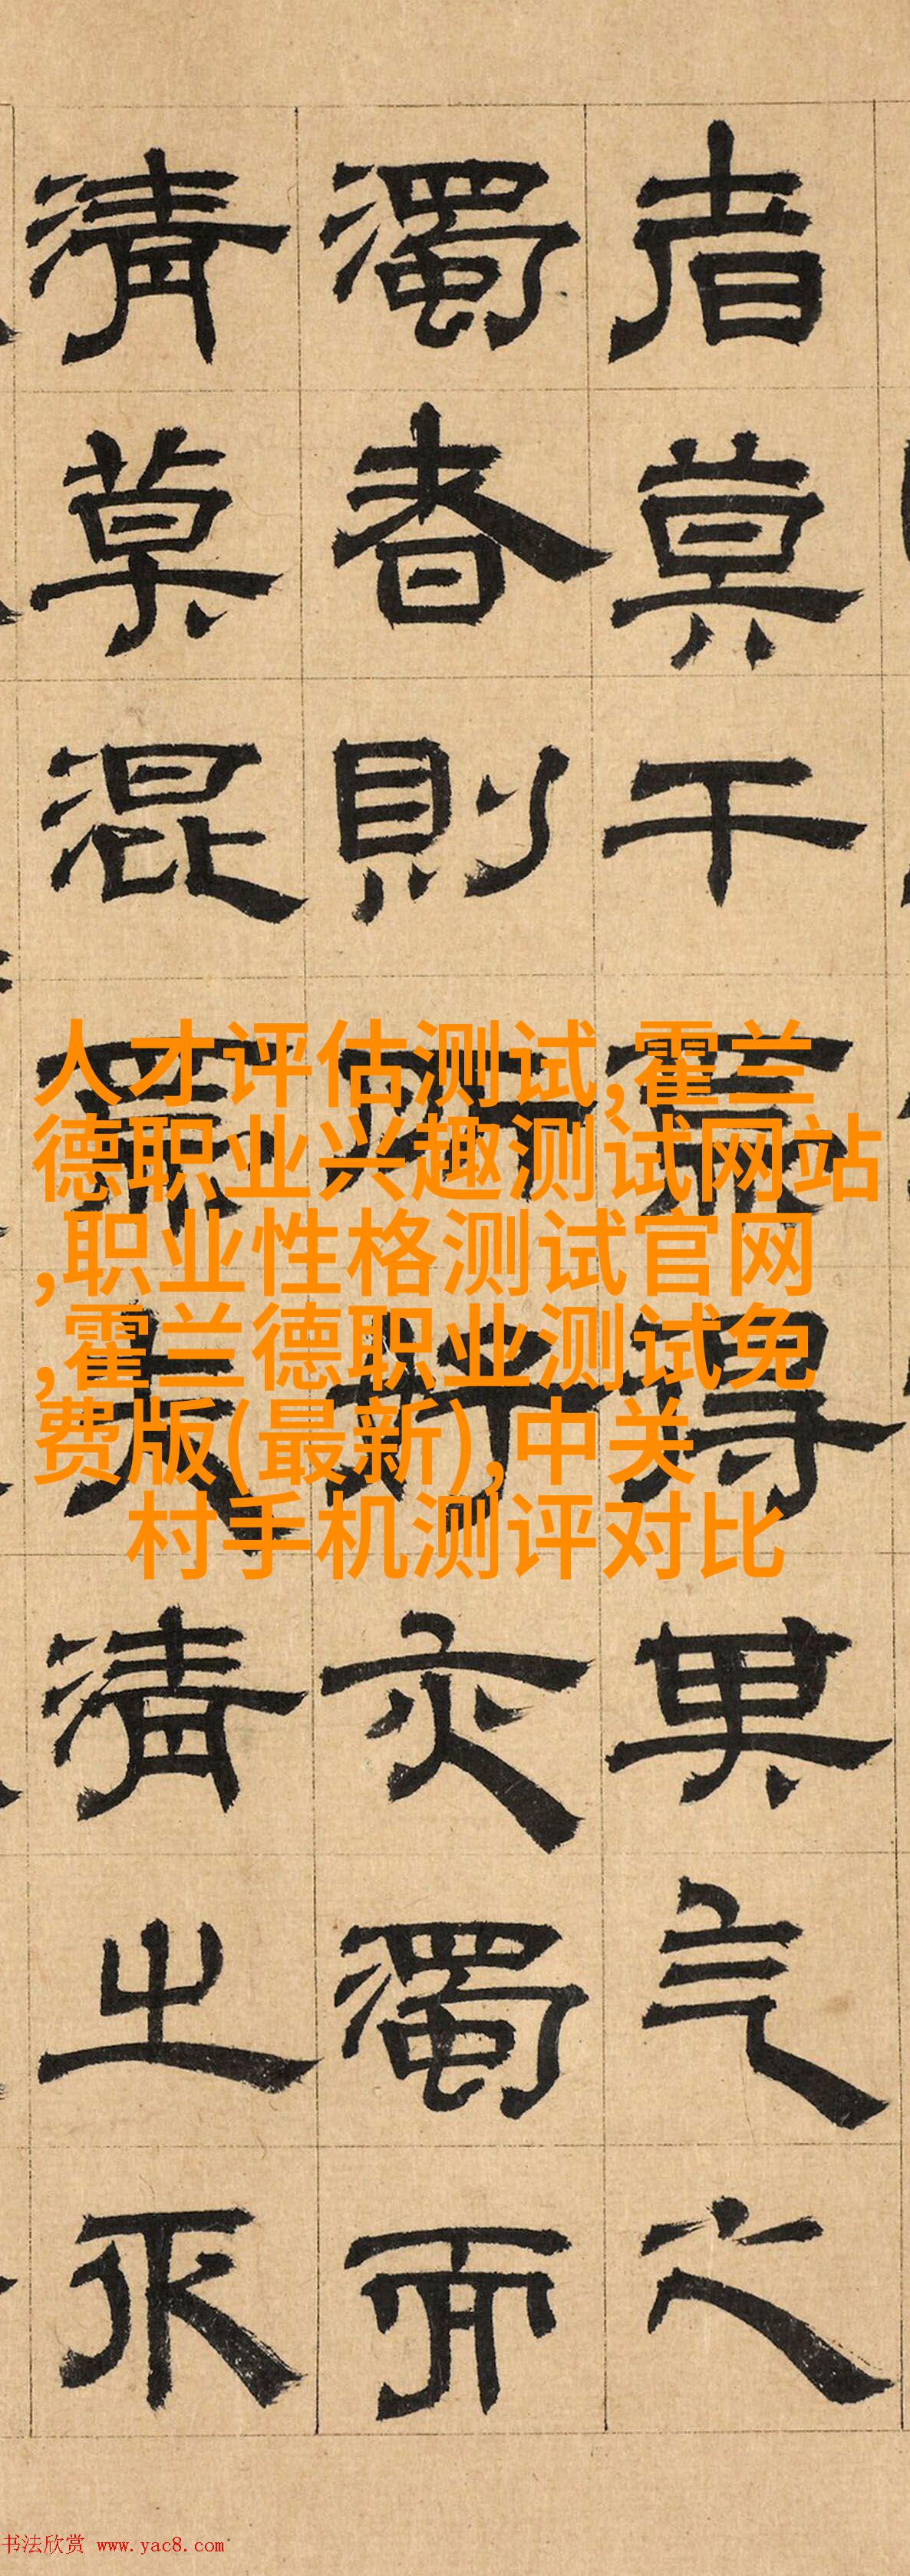 者莫干得其之
濁者則行亦濁而
清莫混清之
人才评估测试,霍兰
德职业兴趣测试网站
,职业性格测试官网
,霍兰德职业测试免
费版(最新),中关
村手机测评对比
书法欣赏 www.yac8.com